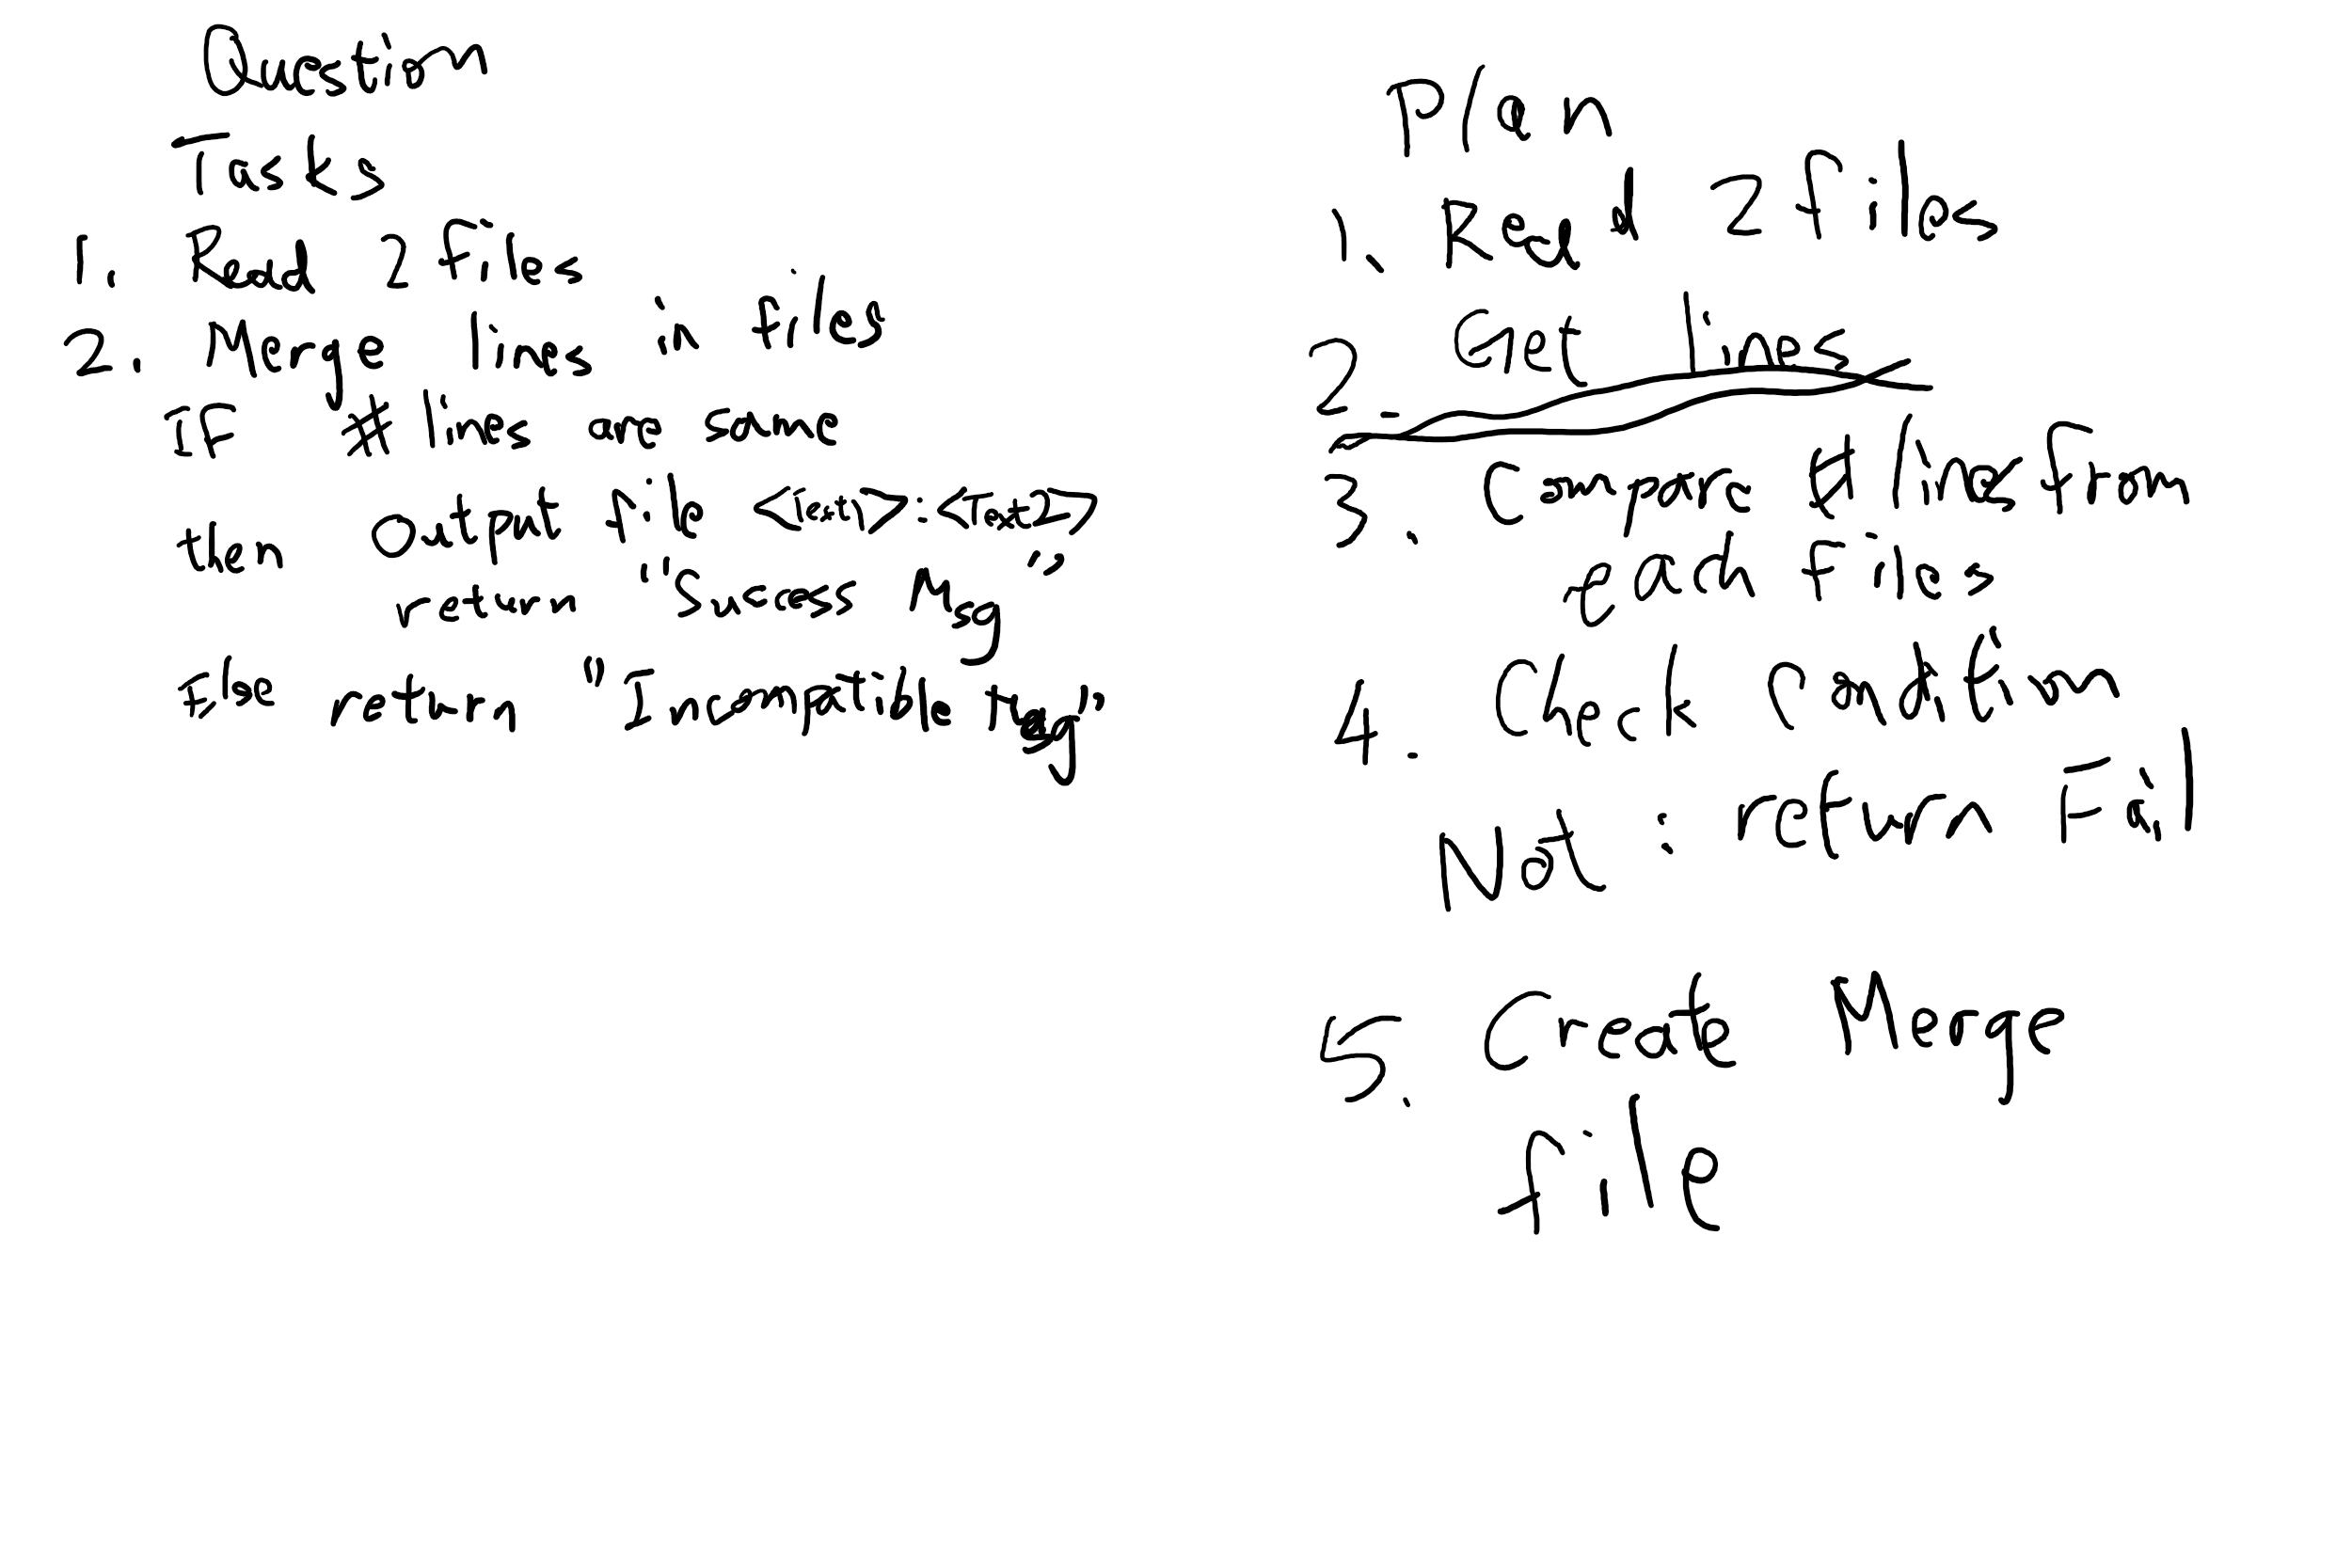 Question
Tasks
1. Read 2 files
2. Merge lines in files
IF # lines are same
then output file <Text>:<Text2>
return "Success Msg"
Else return "Incompatible Msg"
Plan
1. Read 2 files
2. Get lines
3. Compare # lines from
each files
4. Check Condition
Not : return Fail
5. Create Merge
file